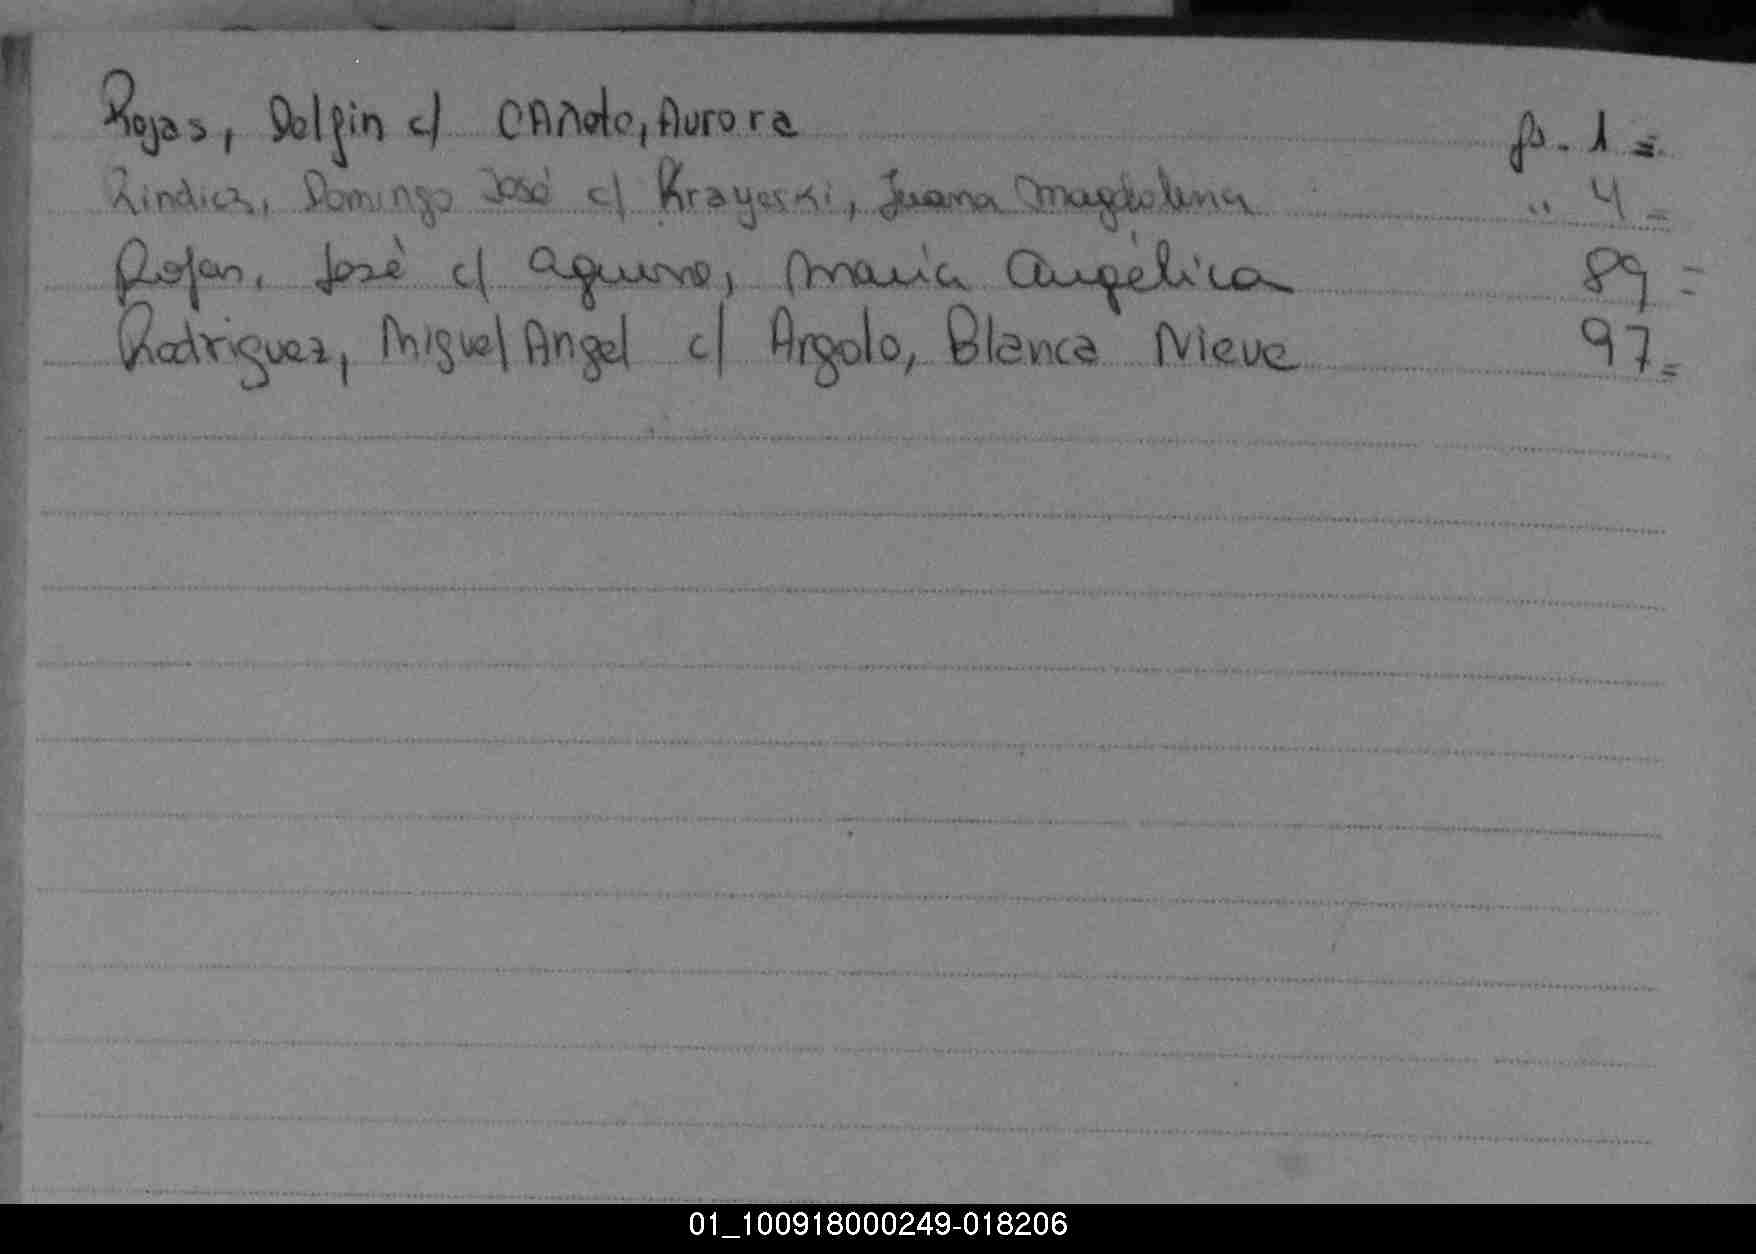 Rojas, Delfin c/ CAñete, Aurora fs. 1=
Rindica, Domingo José c/ Krayeski, Juana Magdalena " 4=
Rojas, José c/ Aquino, María Angélica 89=
Rodriguez, Miguel Angel c/ Argolo, Blanca Nieve 97=
01_100918000249-018206